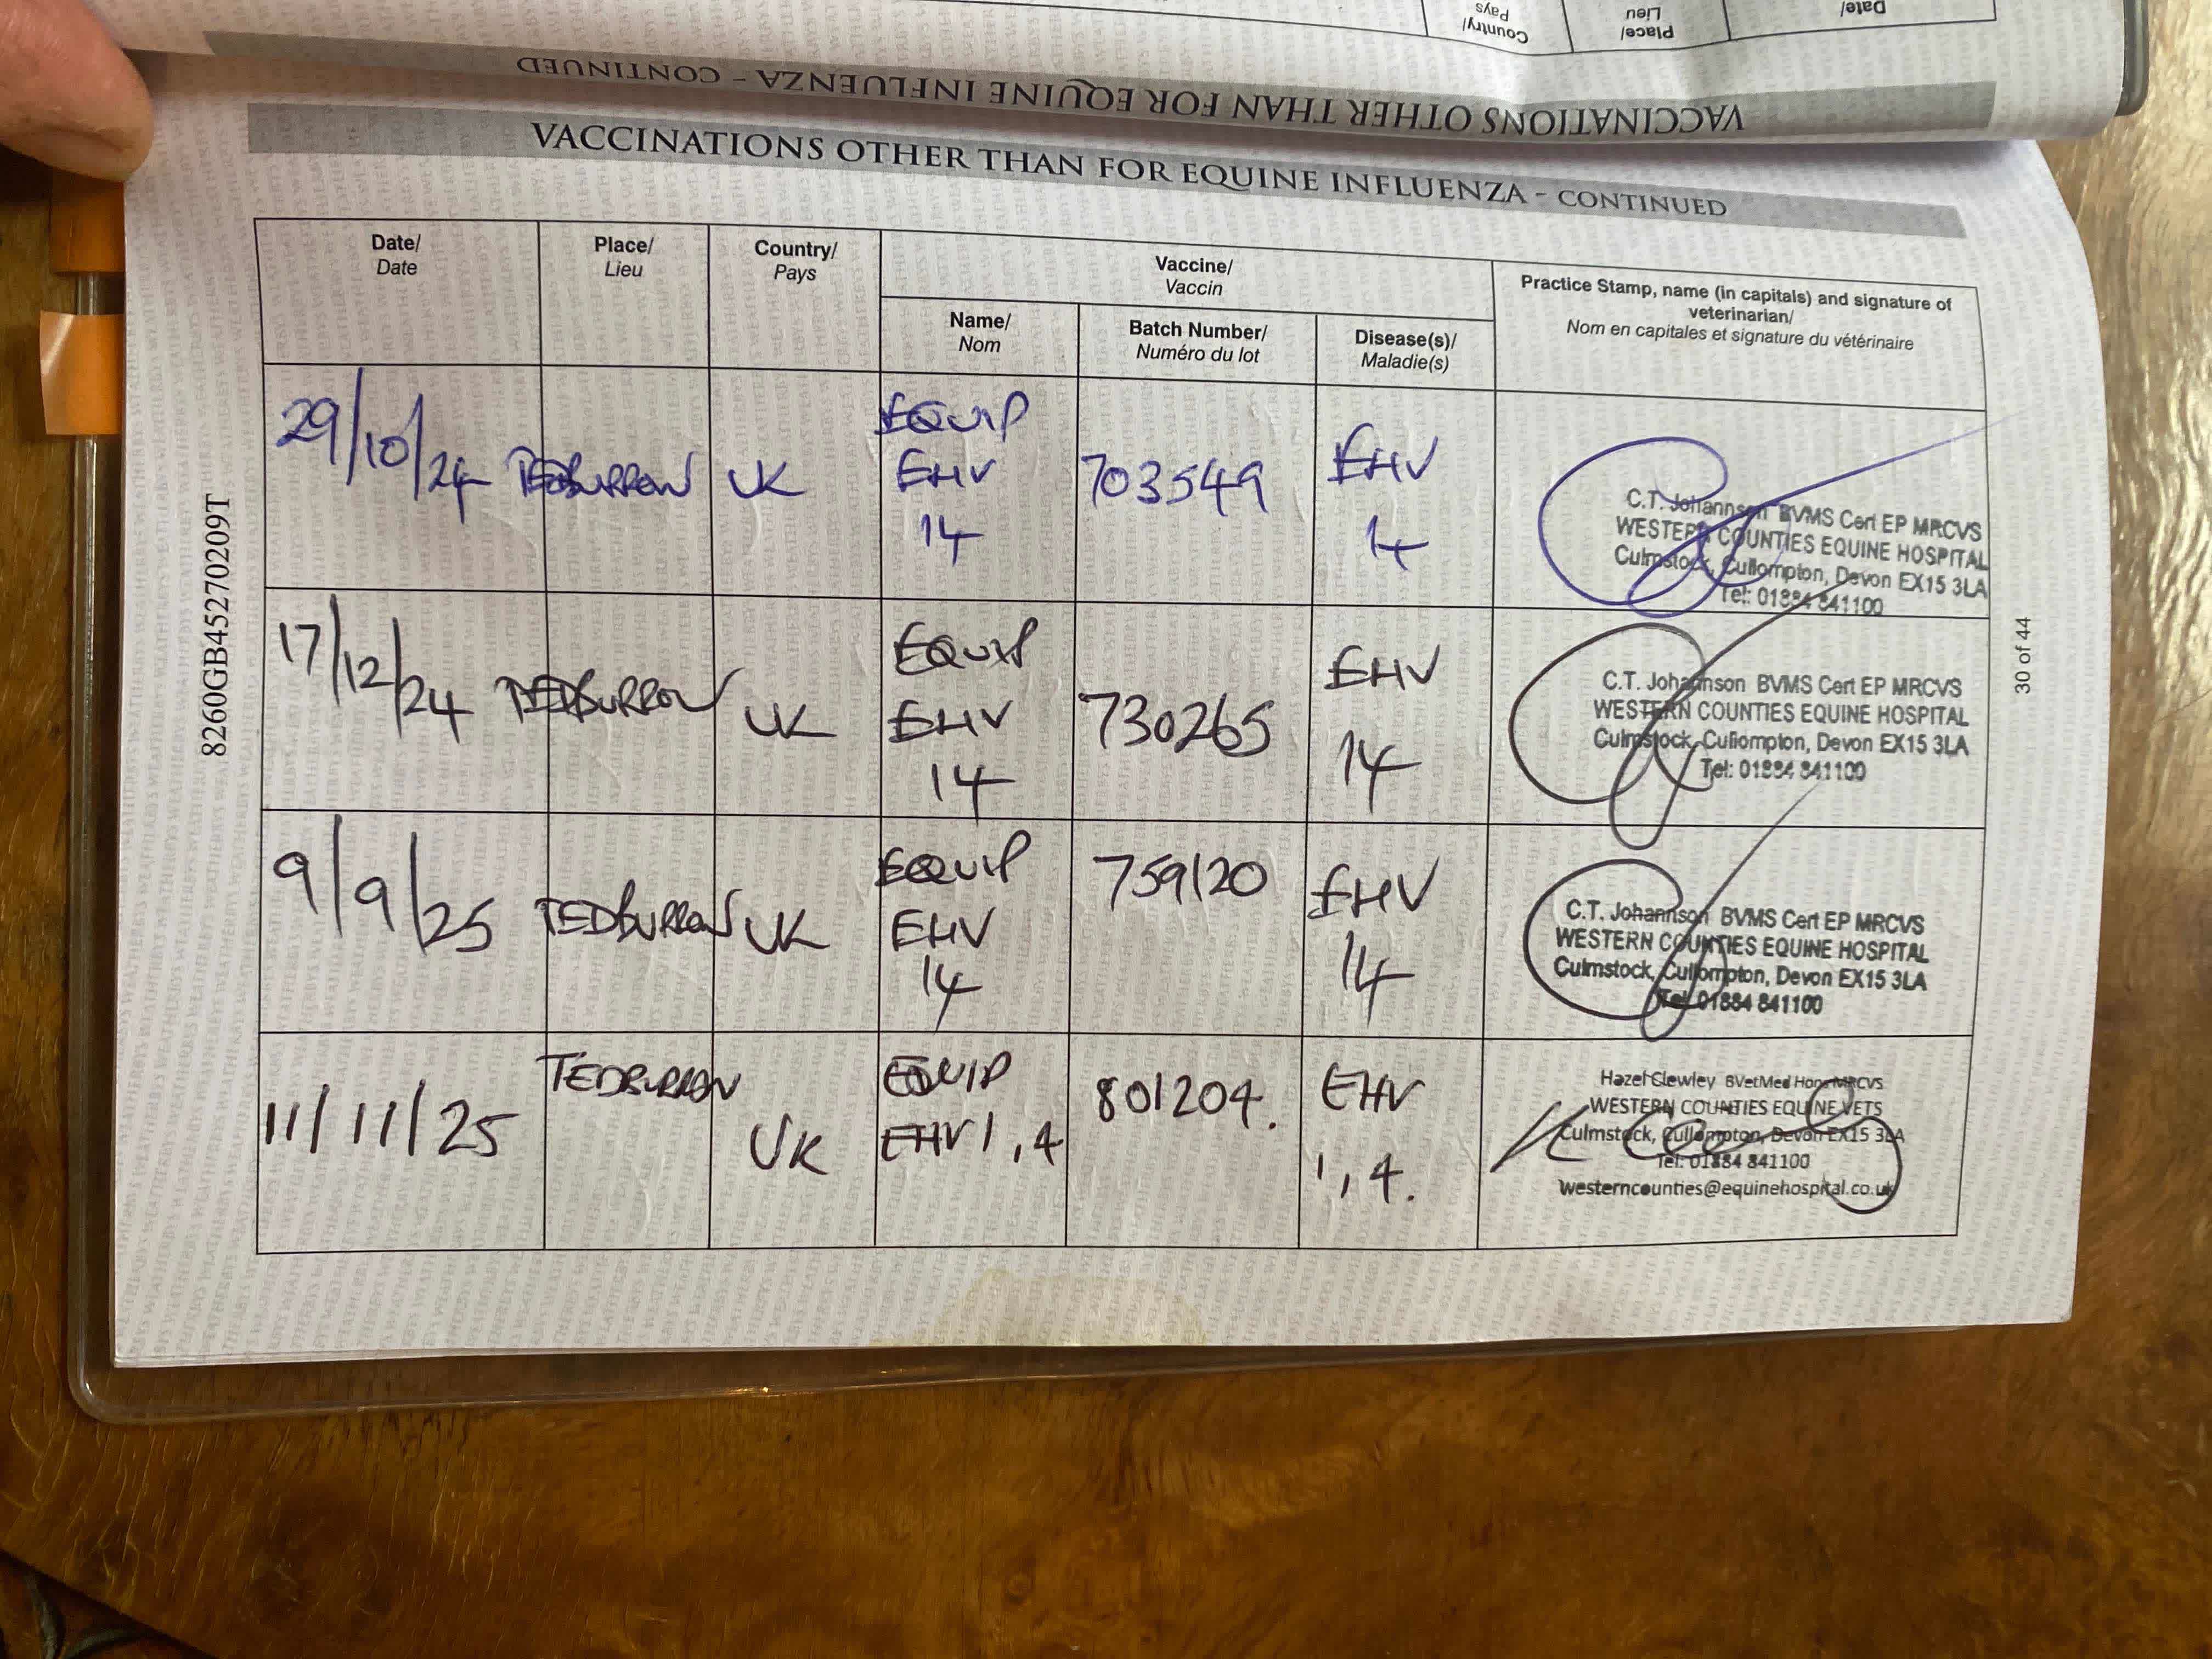 Date/
Lieu
Place/
Pays
Country/
VACCINATIONS OTHER THAN FOR EQUINE INFLUENZA - CONTINUED
VACCINATIONS OTHER THAN FOR EQUINE INFLUENZA - CONTINUED
Date/
Date
Place/
Lieu
Country/
Pays
Vaccine/
Vaccin
Name/
Nom
Batch Number/
Numéro du lot
Disease(s)/
Maladie(s)
Practice Stamp, name (in capitals) and signature of
veterinarian/
Nom en capitales et signature du vétérinaire
29/10/24
TEDBURROW
UK
EQUIP
EHV
14
703549
EHV
14
C.T. Johannson BVMS Cert EP MRCVS
WESTERN COUNTIES EQUINE HOSPITAL
Culmstock, Cullompton, Devon EX15 3LA
Tel: 01884 841100
17/12/24
TEDBURROW
UK
EQUIP
EHV
14
730265
EHV
14
C.T. Johannson BVMS Cert EP MRCVS
WESTERN COUNTIES EQUINE HOSPITAL
Culmstock, Cullompton, Devon EX15 3LA
Tel: 01884 841100
9/9/25
TEDBURROW
UK
EQUIP
EHV
14
759120
EHV
14
C.T. Johannson BVMS Cert EP MRCVS
WESTERN COUNTIES EQUINE HOSPITAL
Culmstock, Cullompton, Devon EX15 3LA
Tel: 01884 841100
11/11/25
TEDBURROW
UK
EQUIP
EHV 1,4
801204.
EHV
1,4.
Hazel Clewley BVetMed Hons MRCVS
WESTERN COUNTIES EQUINE VETS
Culmstock, Cullompton, Devon EX15 3LA
Tel: 01884 841100
westerncounties@equinehospital.co.uk
8260GB45270209T
30 of 44